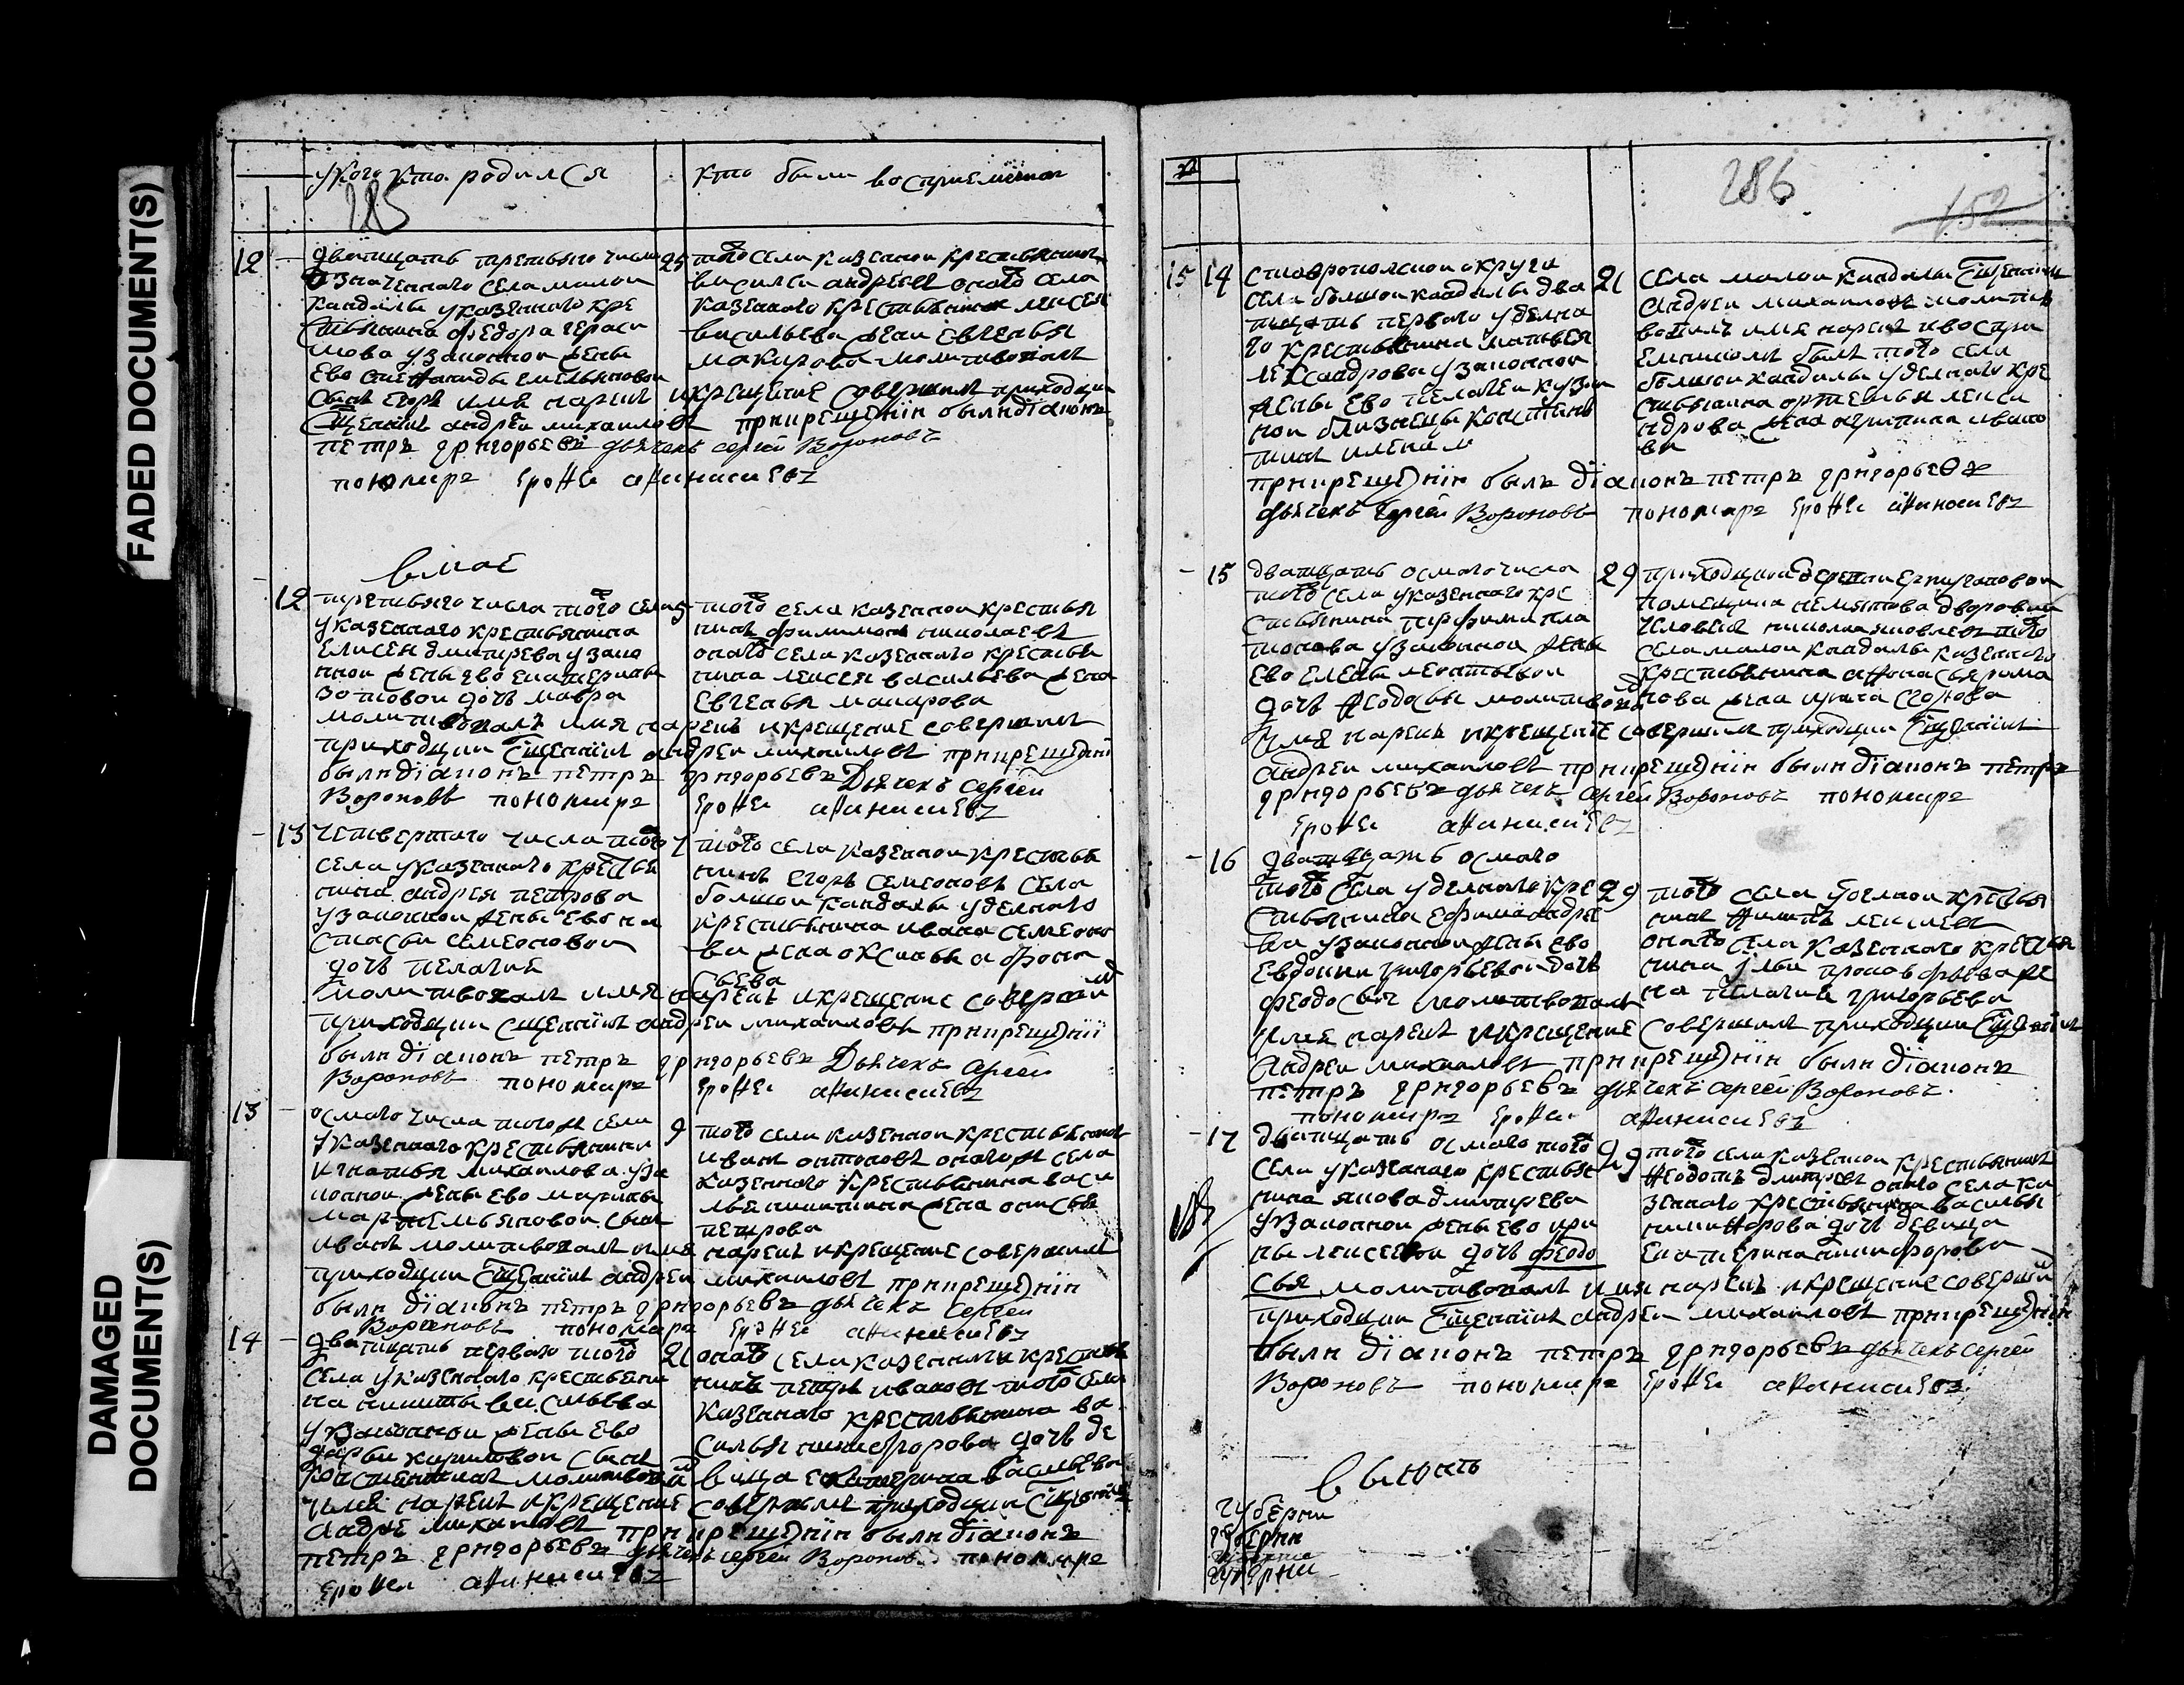 FADED DOCUMENT(S)
DAMAGED
DOCUMENT(S)
у кого кто родился
кто были восприемники
285
12
дватцать третьяго числа
означенного села малои
кандалы у казенного кре
стьянина федора гераси
мова у законнои жены
ево емельяновои
сынъ егоръ имя нареkъ и крещение совершилъ приходцки
Сщенникъ андреи михаиловъ при крещении были диаконъ
петръ григорьевъ дьячекъ сергей Вороновъ
пономарь Ерофеи афанасиевъ
25
того села казеннои крестьянинъ
василеи андреевъ оного села
казенного крестьянина алексея
васильева жена евгенья
макарова молитвовалъ
в мае
12
третьяго числа того села
у казенного крестьянина
Елисея дмитрева у зако
ннои жены ево екатерины
дочь мавра
молитвовалъ имя нарекъ и крещение совершилъ
приходцки Сщенникъ андреи михаиловъ при крещении
были диаконъ петръ григорьевъ Дьячекъ Сергей
Вороновъ пономарь Ерофеи афанасиевъ
5
того села казеннои крестья
нинъ филимонъ николаевъ
оного села казенного крестья
нина алексея васильева жена
Евгенья макарова
13
четвертого числа того
села у казенного крестья
нина андрея петрова
у законнои жены ево на
стасьи семеоновои
дочь пелагие
молитвовалъ имя нарекъ и крещение соверши
приходцки сщенникъ андреи михаиловъ при крещении
были диаконъ петръ григорьевъ Дьячекъ Сергей
Вороновъ пономарь Ерофеи афанасиевъ
7
того села казеннои крестья
нинъ егоръ семеоновъ села
большои кандалы уделного
крестьянина ивана семеоно
ва жена оксинья афона
сьева
13
осмаго числа того ж села
у казенного крестьянина
игнатья михаилова у за
коннои жены ево марины
сынъ
иванъ молитвовалъ имя нарекъ и крещение совершилъ
приходцки Сщенникъ андреи михаиловъ при крещении
были диаконъ петръ григорьевъ дьячекъ Сергей
Вороновъ пономарь Ерофеи афанасиевъ
9
того села казеннои крестьянинъ
иванъ оного ж села
казенного крестьянина васи
лья никитина жена
петрова
14
дватцать перваго того
села у казенного крестьяни
на никиты васильева
у законнои жены ево
дарьи сынъ
констентинъ молитвова
имя нарекъ и крещение совершилъ приходцки Сщенникъ
андре михаиловъ при крещении были диаконъ
петръ григорьевъ дьячекъ сергей Вороновъ пономарь
Ерофеи афанасиевъ
21
оного села казеннои крестья
нинъ петръ ивановъ того села
казенного крестьянина ва
силья никифорова дочь де
вица екатерина васильева
286
152
15 14
ставрополскои округи
села большои кандалы два
тцать перваго у уделна
го крестьянина матвея
лександрова у законнои
жены ево пелагеи кузми
нои близнецы констянь
тинъ именам
при крещении былъ диаконъ петръ григорьевъ
дьячекъ Сергей Вороновъ пономарь Ерофеи афанасиевъ
21
села малои кандалы Сщенникъ
андреи михаиловъ молитв
валъ имя нарекъ и воспри
емникомъ былъ того села
большои кандалы уделного кре
стьянина артемья лекса
ндрова жена агрипина ивано
ва
15
дватцать осмаго числа
того села у казенного кре
стьянина трофима пла
тонова у законнои жены
ево елены леонтьевои
дочь феодосья молитвовалъ
имя нарекъ и крещение совершилъ приходцки Сщенникъ
андреи михаиловъ при крещении были диаконъ петръ
григорьевъ дьячекъ Сергей Вороновъ пономарь
Ерофеи афанасиевъ
29
приходцкои деревни
помещика дворовыи
человекъ николаи яковлевъ того
села малои кандалы казенного
крестьянина афонасья рома
нова жена
16
дватцать осмаго
того села у уделного кре
стьянина ефима андре
ва у законнои жены ево
евдокии григорьевои дочь
феодосья молитвовалъ
имя нарекъ и крещение совершилъ приходцки Сщенникъ
Андреи михаиловъ при крещении были диаконъ
петръ григорьевъ дьячекъ Сергей Вороновъ.
пономарь Ерофеи афанасиевъ
29
того села уделнои крестья
нинъ никита лексиевъ
оного села казенного крестья
нина ильи прокофьева же
на пелагие григорьева
17
дватцать осмаго того
села у казенного крестья
нина якова дмитрева
у законнои жены ево ири
ны лексеевои дочь феодо
сья молитвовалъ имя нарекъ и крещение соверши
приходцки Сщенникъ андреи михаиловъ при крещении
были диаконъ петръ григорьевъ дьячекъ сергей
Вороновъ пономарь Ерофеи афанасиевъ
29
того села казеннои крестьянинъ
федотъ дмитревъ оного села ка
зенного крестьянина василья
никифорова дочь девица
екатерина никифорова
в июне
губерни
губерни
губерни